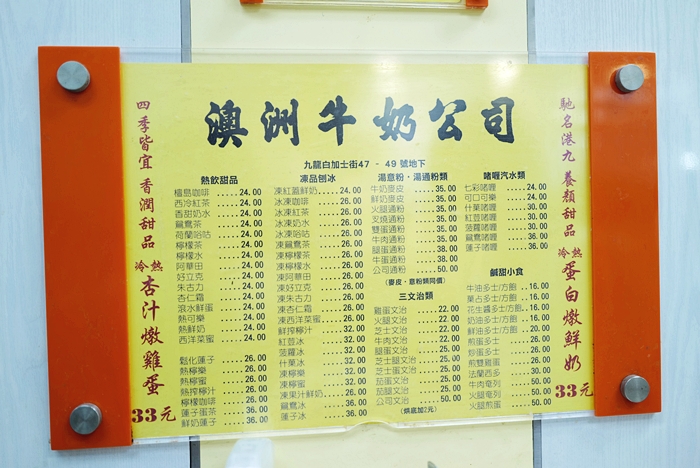 澳洲牛奶公司
九龍白加士街47 - 49 號地下
四季皆宜 香潤甜品
冷熱 杏汁燉雞蛋
33元
熱飲甜品
檀島咖啡 .....24.00
西冷紅茶 .....24.00
香甜奶水 .....24.00
荷蘭唂咕 .....24.00
鴛鴦茶 .....24.00
檸檬茶 .....24.00
檸檬水 .....24.00
阿華田 .....24.00
好立克 .....24.00
朱古力 .....24.00
杏仁霜 .....24.00
滾水鮮蛋 .....24.00
熱可樂 .....24.00
熱鮮奶 .....24.00
西洋菜蜜 .....24.00
鬆化蓮子 .....26.00
熱檸樂 .....26.00
熱檸蜜 .....26.00
熱搾檸汁 .....26.00
檸檬咖啡 .....26.00
蓮子蛋茶 .....36.00
鮮奶蓮子 .....36.00
凍品刨冰
凍紅蓝鮮奶 ....24.00
冰凍咖啡 .....26.00
冰凍紅茶 .....26.00
冰凍奶水 .....26.00
冰凍唂咕 .....26.00
凍鴛鴦茶 .....26.00
凍檸檬茶 .....26.00
凍檸檬水 .....26.00
凍阿華田 .....26.00
凍好立克 .....26.00
凍朱古力 .....26.00
凍杏仁霜 .....26.00
凍西洋菜蜜 ....26.00
鮮搾檸汁 .....32.00
紅荳冰 .....32.00
菠蘿冰 .....32.00
什菓冰 .....32.00
凍檸樂 .....32.00
凍檸蜜 .....32.00
凍菓汁鮮奶 ....36.00
鴛鴦冰 .....36.00
蓮子冰 .....36.00
湯意粉・湯通粉類
牛奶麥皮 .....35.00
鮮奶麥皮 .....35.00
火腿通粉 .....35.00
叉燒通粉 .....35.00
雙蛋通粉 .....35.00
牛肉通粉 .....35.00
腿蛋通粉 .....38.00
牛蛋通粉 .....38.00
公司通粉 .....50.00
(麥皮・意粉類同價)
三文治類
雞蛋文治 .....22.00
火腿文治 .....22.00
芝士文治 .....22.00
牛肉文治 .....22.00
腿蛋文治 .....25.00
芝士腿文治 ....25.00
芝士蛋文治 ....25.00
茄蛋文治 .....25.00
茄腿文治 .....25.00
公司文治 .....50.00
(烘底加2元)
啫喱汽水類
七彩啫喱 .....24.00
可口可樂 .....24.00
什菓啫喱 .....30.00
紅荳啫喱 .....30.00
菠蘿啫喱 .....30.00
鴛鴦啫喱 .....36.00
蓮子啫喱 .....36.00
鹹甜小食
牛油多士/方飽 ..16.00
菓占多士/方飽 ..16.00
花生醬多士/方飽..16.00
奶油多士/方飽 ..16.00
鮮油多士/方飽 ..20.00
煎蛋多士 .....26.00
炒蛋多士 .....26.00
煎雙雞蛋 .....26.00
法蘭西多 .....30.00
牛肉奄列 .....50.00
火腿奄列 .....50.00
火腿煎蛋 .....50.00
馳名港九 養顏甜品
冷熱 蛋白燉鮮奶
33元